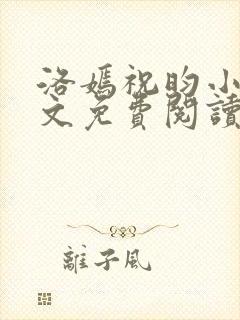 洛嫣祝昀小
文免費閱讀
離子風